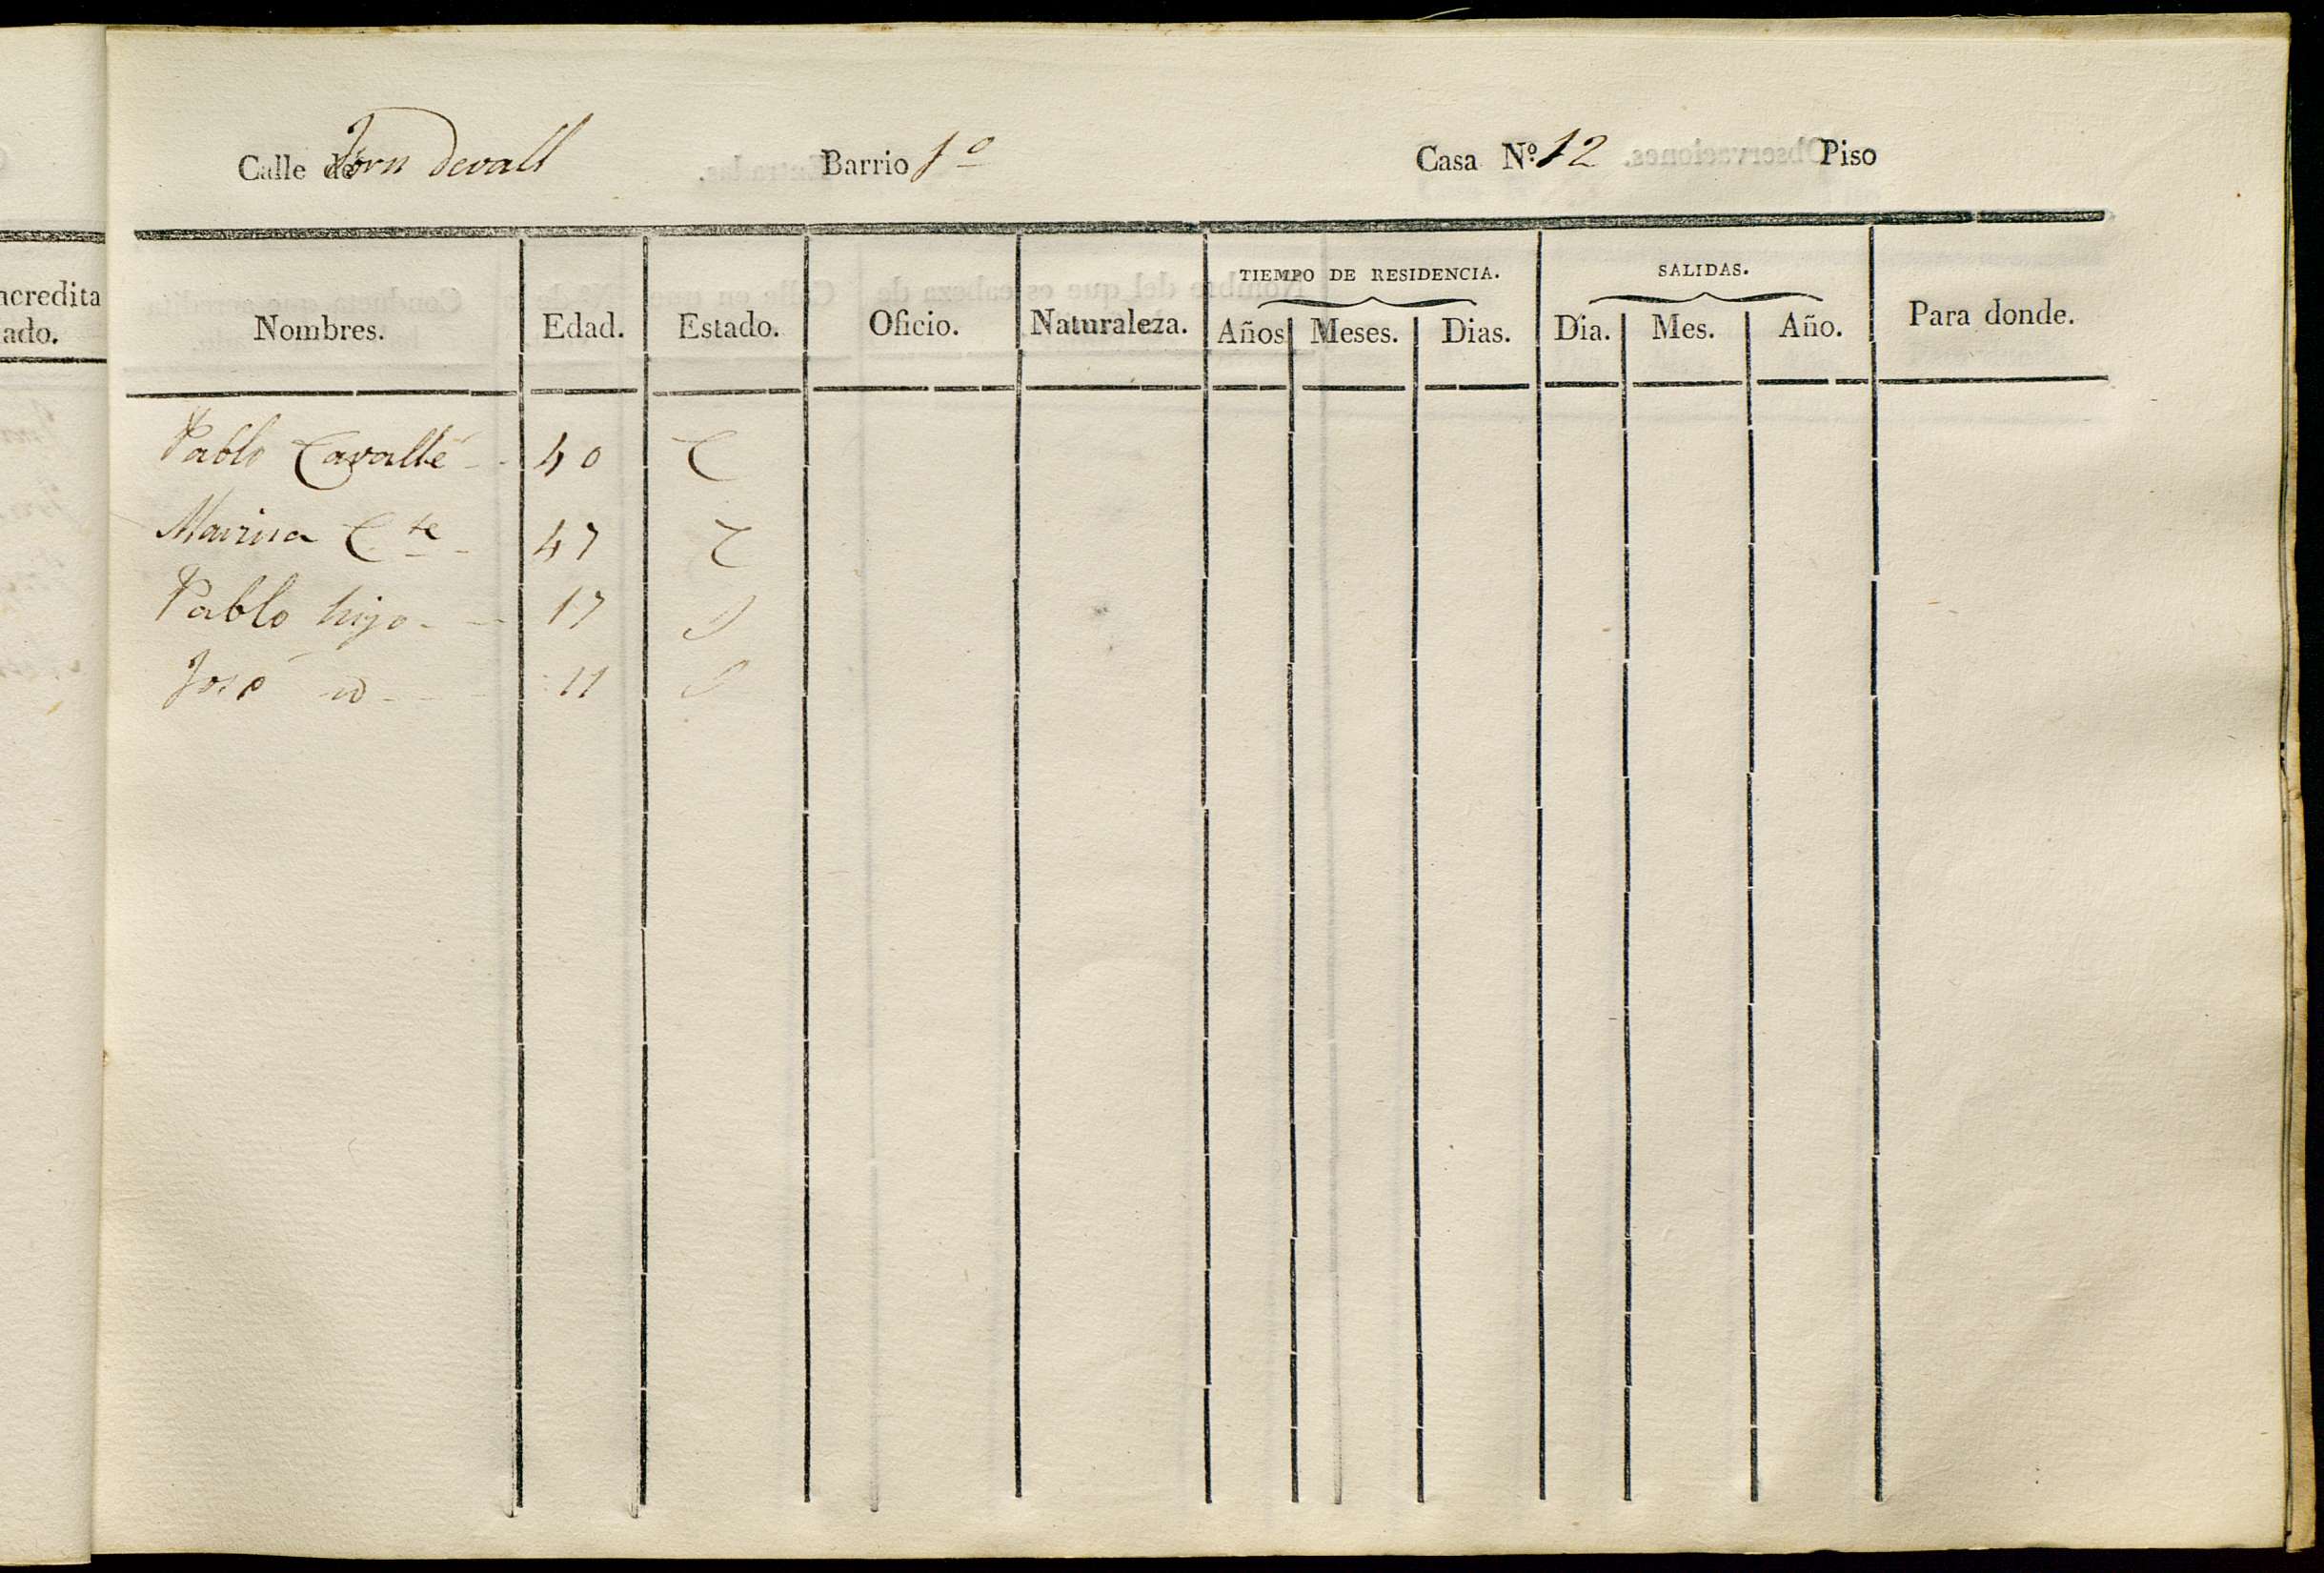 Calle de Forn Devall Barrio 1º Casa Nº 12 Piso
TIEMPO DE RESIDENCIA. SALIDAS.
Nombres. Edad. Estado. Oficio. Naturaleza. Años Meses. Dias. Dia. Mes. Año. Para donde.
Pablo Cavallé 40 C
C.te 47 C
Pablo hijo 17 S
José id 11 S
ncredita
ado.